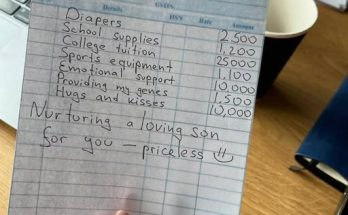 Details HSN Rate Amount
Diapers 2,500
School supplies 1,200
College tuition 25000
Sports equipment 1,100
Emotional support 10,000
Providing my genes 1,500
Hugs and kisses 10,000
Nurturing a loving son
for you – priceless